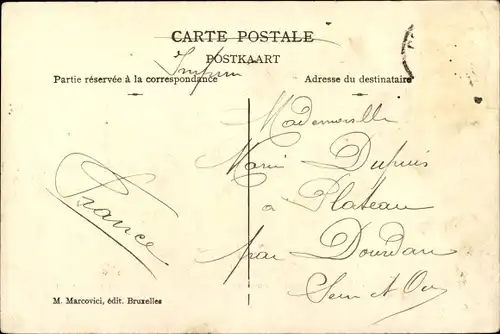 CARTE POSTALE
POSTKAART
Partie réservée à la correspondance
Adresse du destinataire
Mademoiselle
Marie Dupuis
à Plateau
par Dourdan
Seine et Oise
France
M. Marcovici, édit. Bruxelles